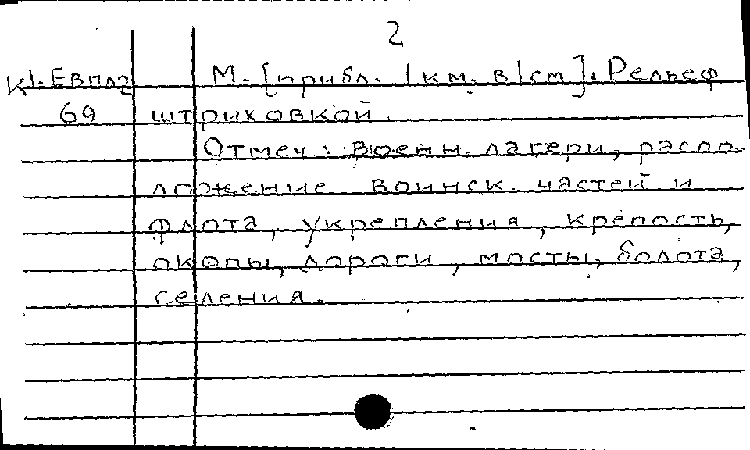 2
М. [прибл. 1 км. в 1 см]. Рельеф
69 штриховкой.
Отмеч: военн. лагери, распо
ложение воинск. частей и
флота, укрепления, крепость,
окопы, дороги, мосты, болота,
селения.